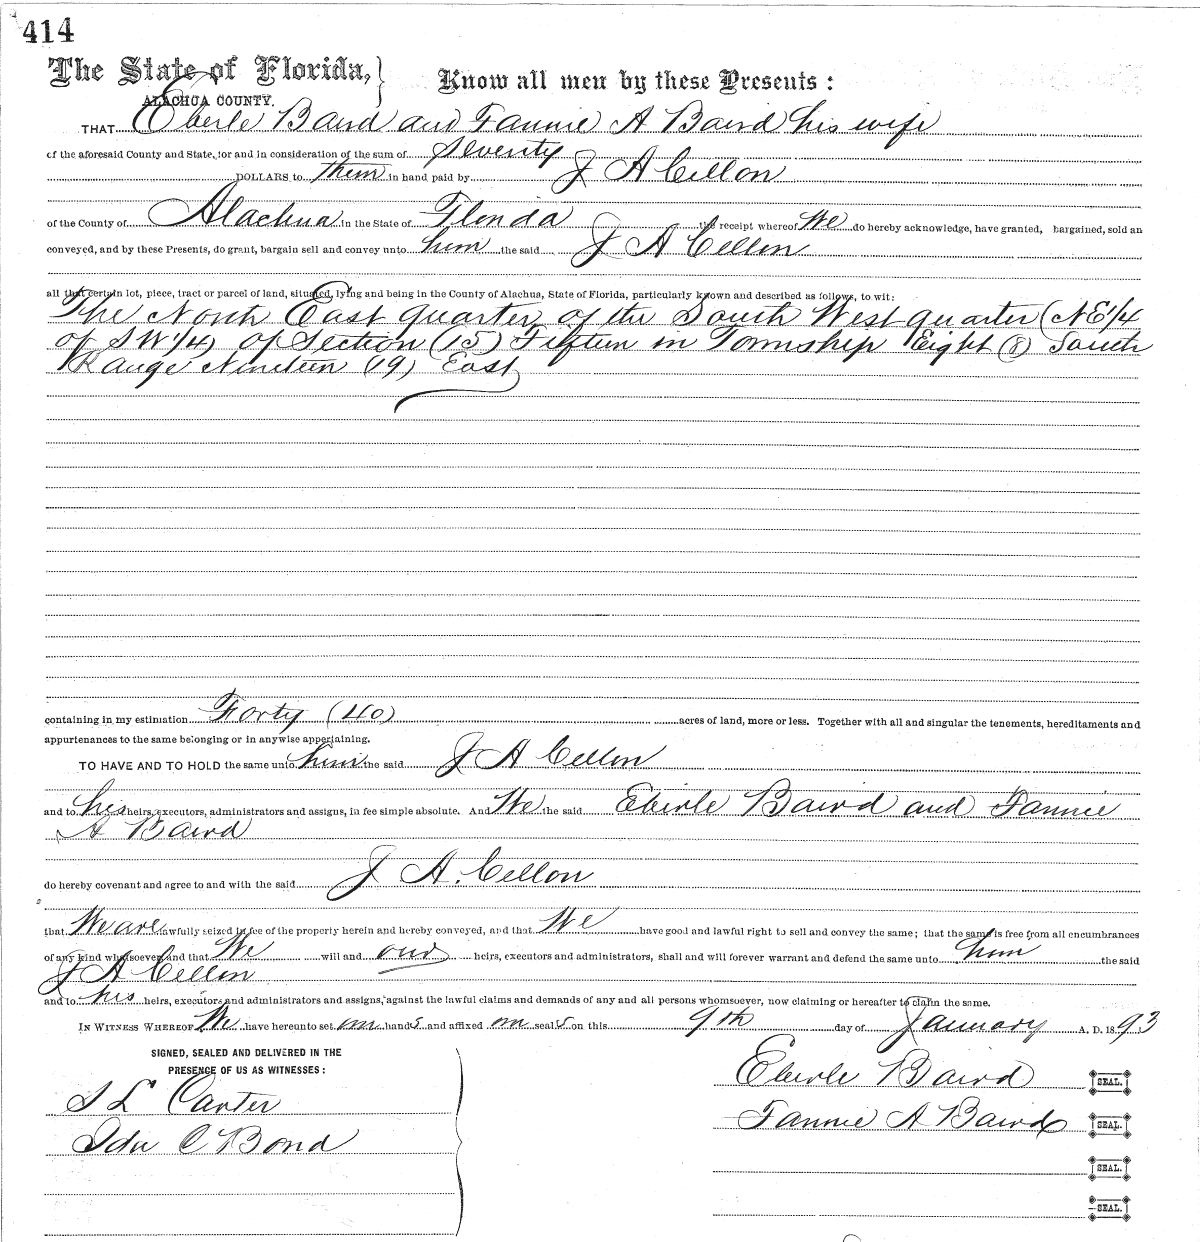 414
The State of Florida,
ALACHUA COUNTY.
Know all men by these Presents:
THAT Eberle Baird and Fannie A Baird his wife
of the aforesaid County and State, for and in consideration of the sum of Seventy
DOLLARS to them in hand paid by J A Cellon
of the County of Alachua in the State of Florida the receipt whereof We do hereby acknowledge, have granted, bargained, sold an
conveyed, and by these Presents, do grant, bargain sell and convey unto him the said J A Cellon
all that certain lot, piece, tract or parcel of land, situated, lying and being in the County of Alachua, State of Florida, particularly known and described as follows, to wit:
The North East quarter of the South West quarter (NE1/4
of SW1/4) of Section (15) Fifteen in Township Eight (8) South
Range Nineteen (19) East
containing in my estimation Forty (40) acres of land, more or less. Together with all and singular the tenements, hereditaments and
appurtenances to the same belonging or in anywise appertaining.
TO HAVE AND TO HOLD the same unto him the said J A Cellon
and to his heirs, executors, administrators and assigns, in fee simple absolute. And We the said Eberle Baird and Fannie
A Baird
do hereby covenant and agree to and with the said J A. Cellon
that We are lawfully seized in fee of the property herein and hereby conveyed, and that We have good and lawful right to sell and convey the same; that the same is free from all encumbrances
of any kind whatsoever and that We will and our heirs, executors and administrators, shall and will forever warrant and defend the same unto him the said
J A Cellon
and to his heirs, executors and administrators and assigns, against the lawful claims and demands of any and all persons whomsoever, now claiming or hereafter to claim the same.
IN WITNESS WHEREOF We have hereunto set our hands and affixed our seals on this 9th day of January A. D. 1893
SIGNED, SEALED AND DELIVERED IN THE
PRESENCE OF US AS WITNESSES:
S L Carter
Ida C Bond
Eberle Baird SEAL.
Fannie A Baird SEAL.
SEAL.
SEAL.